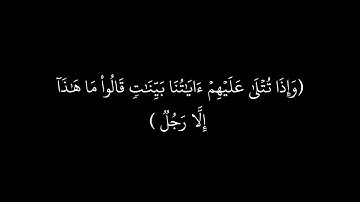 (وَإِذَا تُتۡلَىٰ عَلَيۡهِمۡ ءَايَٰتُنَا بَيِّنَٰتٖ قَالُواْ مَا هَٰذَآ
إِلَّا رَجُلٞ )